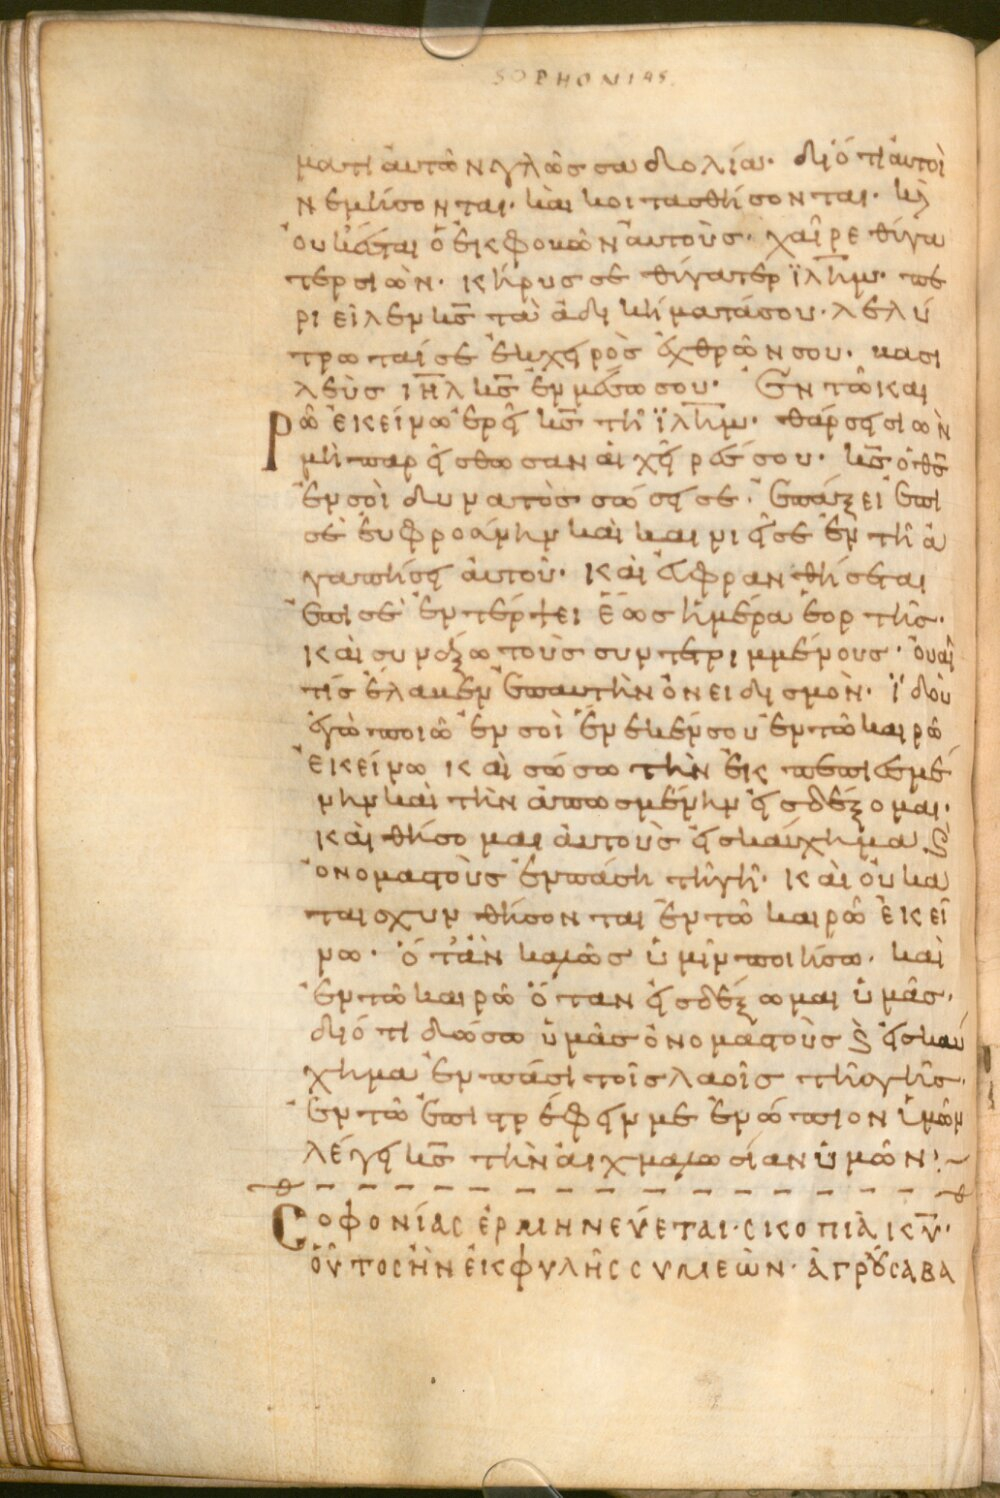 SOPHONIAS.
ματι ἀυτῶν γλῶσσα διολία· διότι ἀυτοὶ
νεμήσονται· καὶ κοιτασθήσονται· κ̀
ὀυκέσται ὁ ἐκφοκῶν ἀυτοὺς· χαῖρε θύγα
τερ σιὼν· κήρυσσε θύγατερ ϊλ̅η̅μ· πε
ριεῖλεν κ̅ς̅ τὰ ἀδικήματάσου· λελύ
τρωταί σε ἐκ χειρὸς ἐχθρῶν σου· βασι
λεὺς ι̅η̅λ κ̅ς̅ ἐν μέσω σου· Ἐν τῶ και
ρῶ ἐκείνω ἐρεῖ κ̅ς̅ τῆ ϊλ̅η̅μ· θάρσει σιὼν
μὴ παρείσθωσαν ἁι χεῖρές σου· κ̅ς̅ ὁ θ̅ς̅
ἐν σοὶ δυνατὸς σώσει σε· ἐπάξει ἐπὶ
σὲ ἐυφροσύνην καὶ καινιεῖ σε ἐν τῆ ἀ
γαπήσει ἀυτοῦ· καὶ ἐυφρανθήσεται
ἐπὶ σὲ ἐν τέρψει ἕως ἡμέρα ἑορτῆς·
καὶ συνάξω τοὺς συντετριμμένους· ὀυαῖ
τίς ἔλαβεν ἐπ αυτὴν ὀνειδισμὸν· ϊδοὺ
ἐγὼ ποιῶ ἐν σοὶ ἕνεκέν σου ἐν τῶ καιρῶ
ἐκείνω καὶ σώσω τὴν ἐκπεπιεσμέ
νην καὶ τὴν ἀπωσμένην εἰσδέξομαι·
καὶ θήσομαι ἀυτοὺς εἰς καύχημα ϗ
ὀνομαστοὺς ἐν πάση τῆ γῆ· καὶ ὀυ κα
ταισχυνθήσονται ἐν τῶ καιρῶ ἐκεί
νω· ὅταν καλῶς ὑμῖν ποιήσω· καὶ
ἐν τῶ καιρῶ ὅταν εἰσδέξωμαι ὑμᾶς·
διότι δώσω ὑμᾶς ὀνομαστοὺς ϗ εἰς καύ
χημα ἐν πάσι τοῖς λαοῖς τῆς γῆς·
ἐν τῶ ἐπιστρέφειν με ἐνώπιον ὑμῶν
λέγει κ̅ς̅ τὴν ἀιχμαλωσίαν ὑμῶν·
Σοφονίας ἑρμηνεύεται· σκοπιὰ κ̅υ̅·
ὁῦτος ἦν ἐκ φυλῆς συμεὼν· ἀγροῦ σαβα